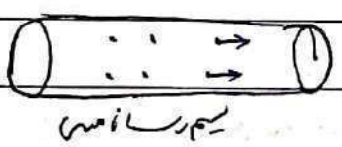 سیم رسانا مسی